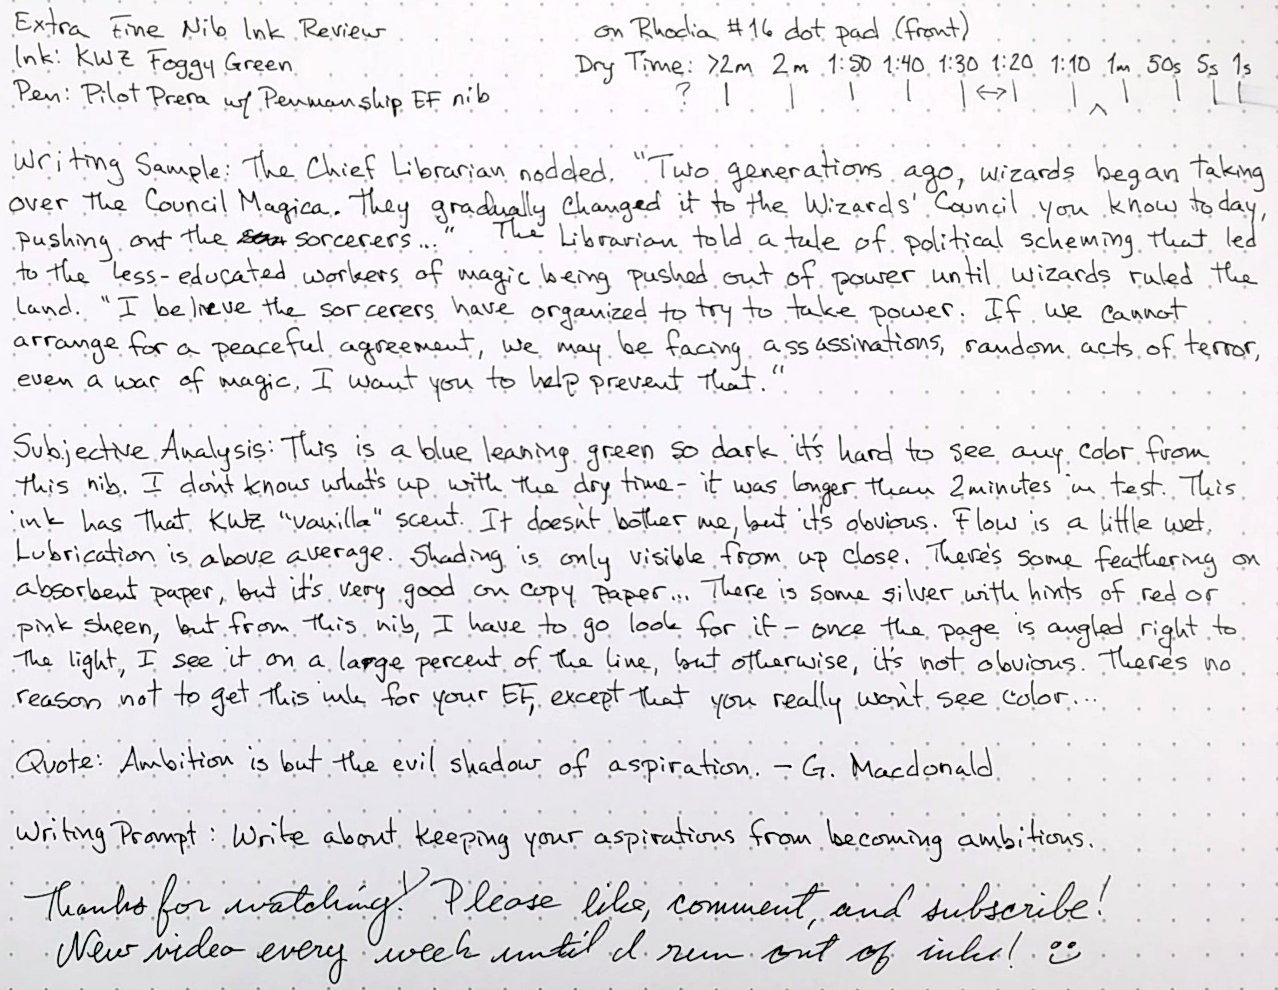 Extra Fine Nib Ink Review
on Rhodia #16 dot pad (front)
Ink: KWZ Foggy Green
Dry Time: >2m 2m 1:50 1:40 1:30 1:20 1:10 1m 50s 5s 1s
Pen: Pilot Prera w/ Penmanship EF nib
?
Writing Sample: The Chief Librarian nodded. "Two generations ago, wizards began taking
over the Council Magica. They gradually changed it to the Wizards' Council you know today,
pushing out the sorcerers..." The Librarian told a tale of political scheming that led
to the less-educated workers of magic being pushed out of power until wizards ruled the
land. "I believe the sorcerers have organized to try to take power. If we cannot
arrange for a peaceful agreement, we may be facing assassinations, random acts of terror,
even a war of magic. I want you to help prevent that."
Subjective Analysis: This is a blue leaning green so dark it's hard to see any color from
this nib. I don't know what's up with the dry time - it was longer than 2 minutes in test. This
ink has that KWZ "vanilla" scent. It doesn't bother me, but it's obvious. Flow is a little wet.
Lubrication is above average. Shading is only visible from up close. There's some feathering on
absorbent paper, but it's very good on copy paper... There is some silver with hints of red or
pink sheen, but from this nib, I have to go look for it - once the page is angled right to
the light, I see it on a large percent of the line, but otherwise, it's not obvious. There's no
reason not to get this ink for your EF, except that you really won't see color...
Quote: Ambition is but the evil shadow of aspiration. - G. Macdonald
Writing Prompt: Write about keeping your aspirations from becoming ambitions.
Thanks for watching! Please like, comment, and subscribe!
New video every week until I run out of inks! :)